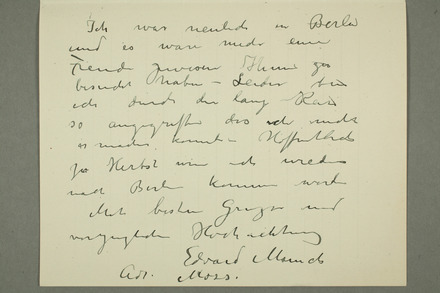 Ich war neulich in Berlin
und es wäre mir eine
Freude gewesen Ihnen zu
besucht haben – Leider bin
ich durch die lang
so angegriffen das ich nicht
es machen konnte. Hoffentlich
zu Herbst wen ich wieder
nach Berlin kommen werde
Mit besten Grüssen und
vorzüglichen Hochachtung
Edvard Munch
Adr. Moss.